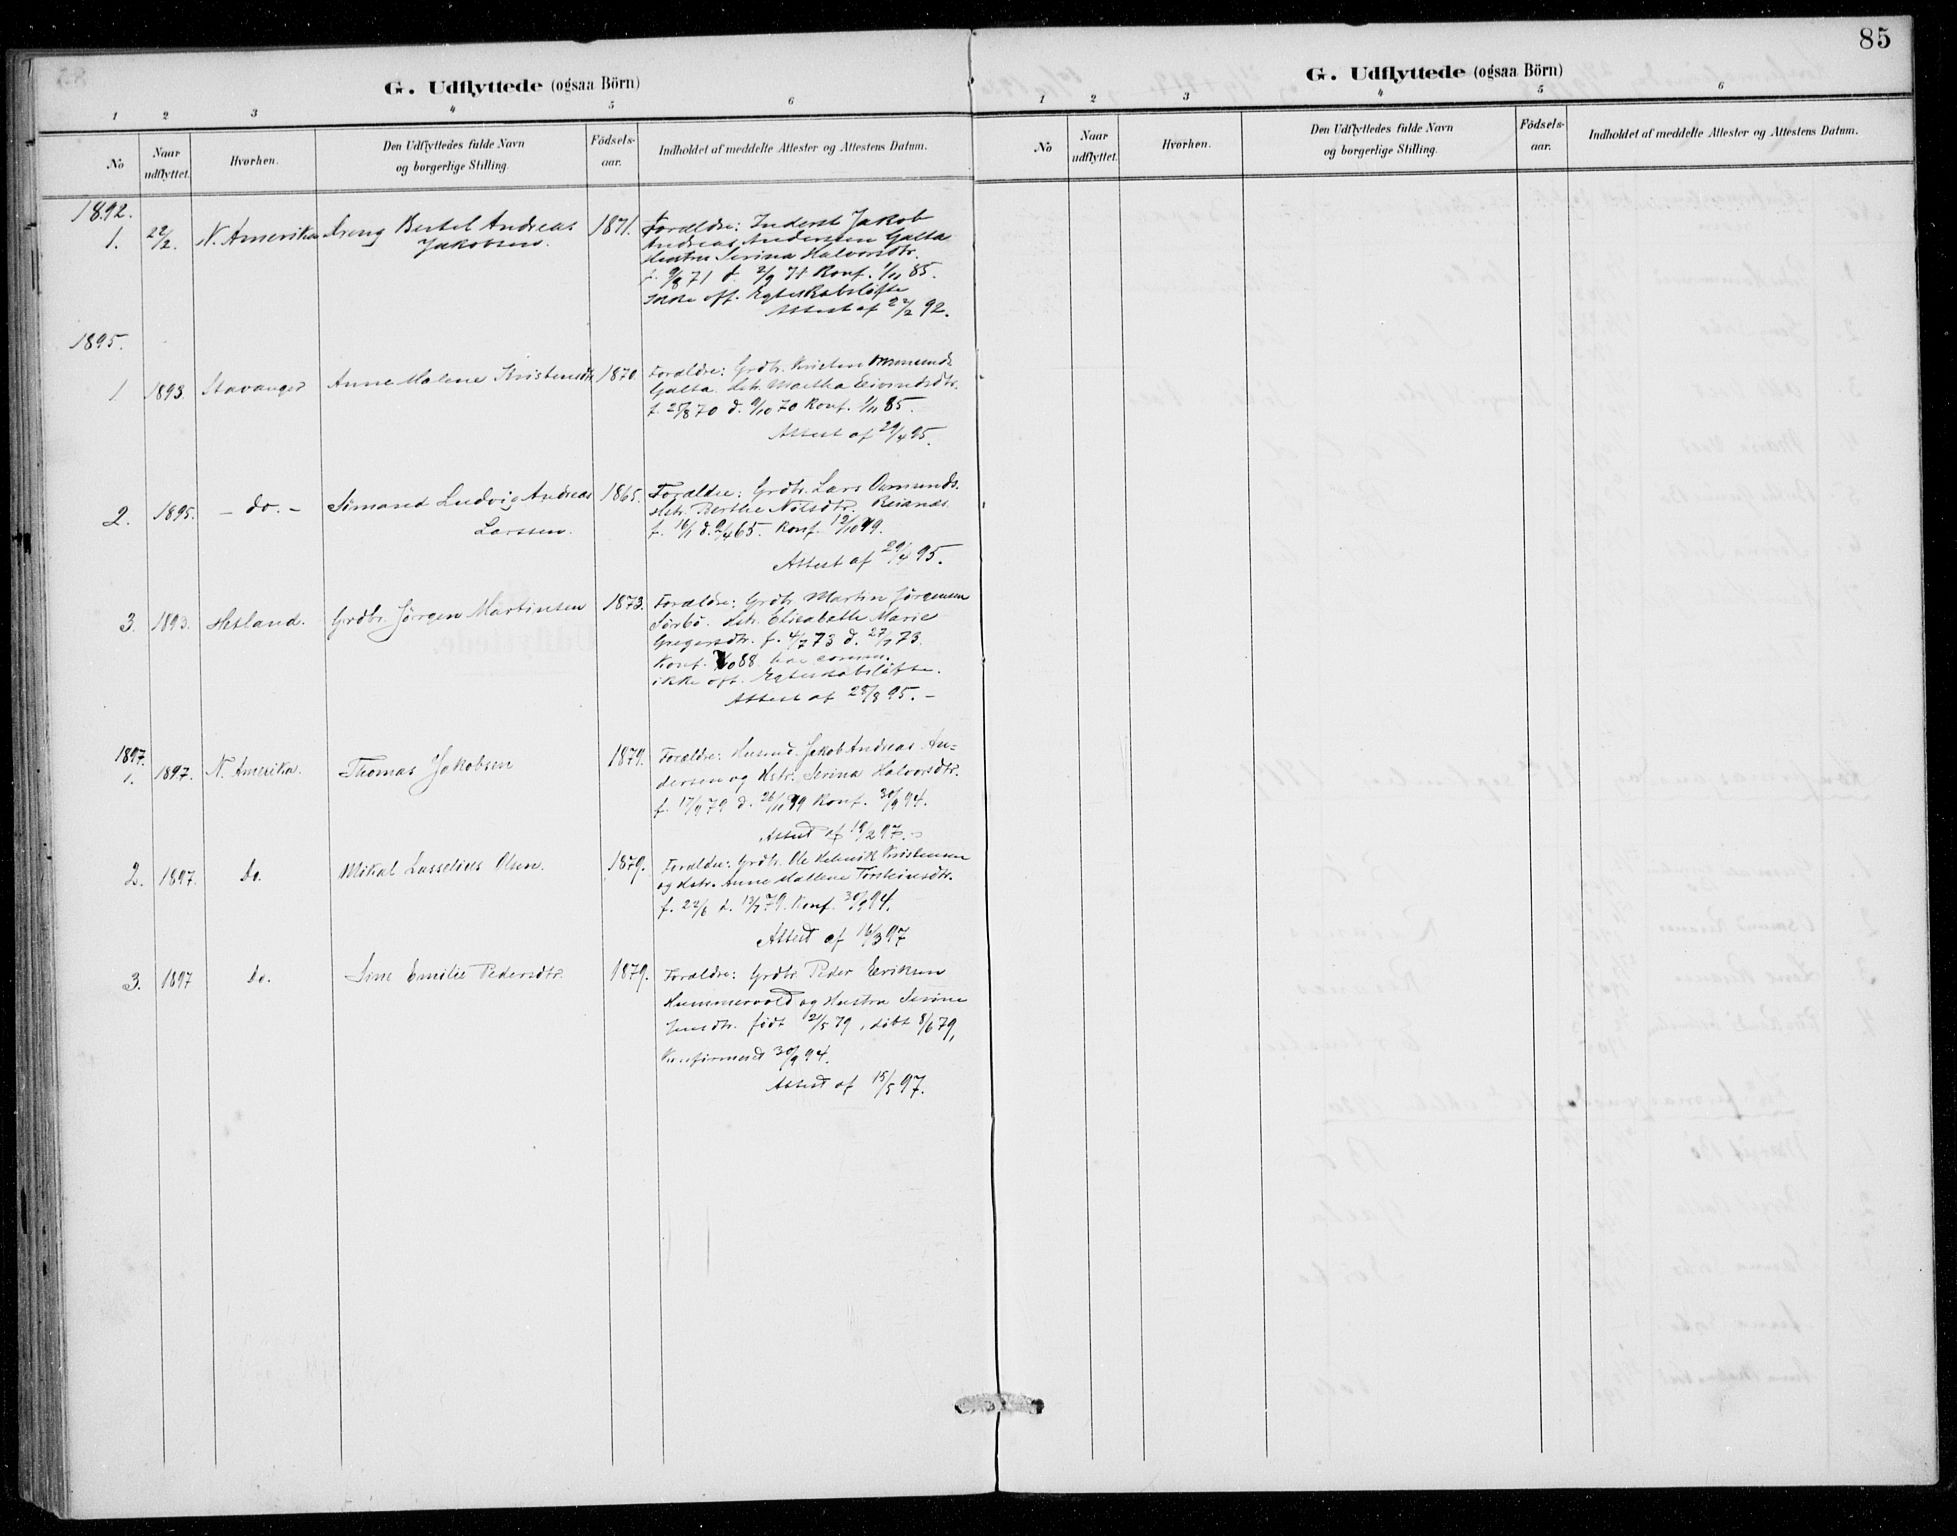 85
G. Udflyttede (ogsaa Börn)
1 2 3 4 5 6
No
Naar udflyttet.
Hvorhen.
Den Udflyttedes fulde Navn og borgerlige Stilling.
Födsels-aar.
Indholdet af meddelte Attester og Attestens Datum.
1892.
1. 22/2. N. Amerika Dreng Bertel Andreas
Jakobsen.
1871.
Forældre: Inderst Jakob
Andreas Andersen Galta
Hustru Serina Halvorsdtr.
f. 9/8 71 d. 2/9 71 Konf. 1/11 85.
Ikke off. Egteskabsløfte
Attest af 22/2 92.
1895.
1. 1893. Stavanger Anne Malene Kristensdtr. 1870.
Forældre: Grdbr. Kristen Osmunds.
Galta. Hstr. Martha Eivindsdtr.
f. 25/8 70 d. 9/10 70 Konf. 1/11 85.
Attest af 29/4 95.
2. 1895. - do. - Simond Ludvig Andreas
Larssen.
1865.
Forældre: Grdbr. Lars Osmunds.
Hstr. Berthe Nilsdtr. Reianes
f. 16/1 d. 2/4 65. Konf. 12/10 79.
Attest af 29/4 95.
3. 1893. Hetland. Grdbr. Jørgen Martinsen 1873.
Forældre: Grdbr. Martin Jørgensen
Sørbø. Hstr. Elisabeth Marie
Gregersdtr. f. 4/7 73 d. 27/7 73.
Konf. 7/10 88 har comm.
ikke off. Egteskabsløfte.
Attest af 28/8 95. -
1897.
1. 1897. N. Amerika. Thomas Jakobsen 1879.
Forældre: Husmd. Jakob Andreas An-
dersen og Hstr. Serina Halvorsdtr.
f. 17/9 79 d. 26/10 79 Konf. 30/9 94.
Attest af 19/2 97.
2. 1897. Do. Mikal Lasselius Olsen. 1879.
Forældre: Grdbr. Ole Helmik Kristensen
og Hstr. Anne Mallene Torsteinsdtr.
f. 22/6 d. 13/7 79. Konf. 30/9 94.
Attest af 16/3 97
3. 1897 Do. Sine Emilie Pedersdtr. 1879.
Forældre: Grdbr. Peder Eeriksen
Hummervold og Hustru Serine
Jensdtr. født 21/5 79, døbt 8/6 79,
Konfirmeret 30/9 94.
Attest af 15/5 97.
G. Udflyttede (ogsaa Börn)
1 2 3 4 5 6
No
Naar udflyttet.
Hvorhen.
Den Udflyttedes fulde Navn og borgerlige Stilling.
Födsels-aar.
Indholdet af meddelte Attester og Attestens Datum.